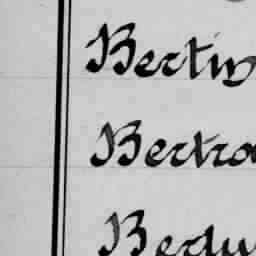 Bertin
Bertra
Bertu